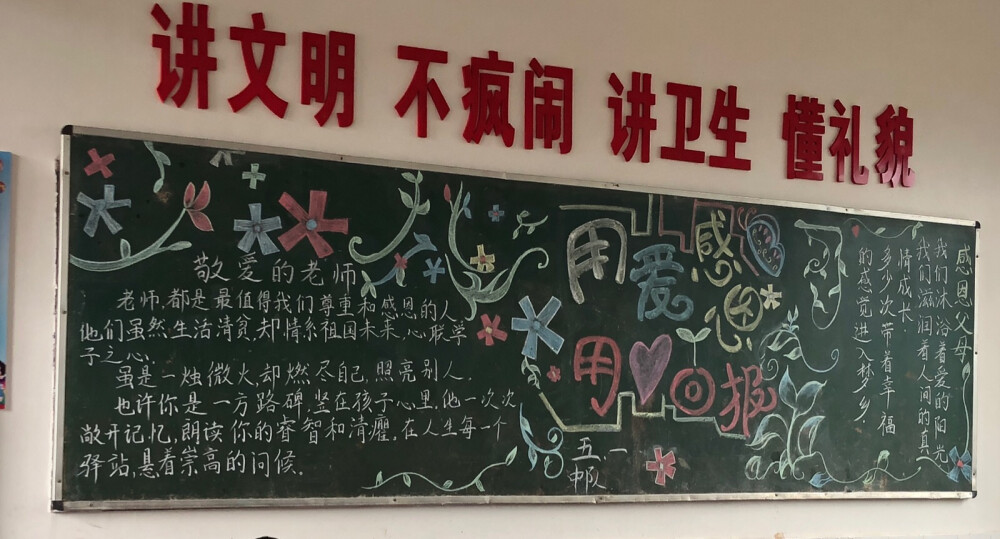 讲文明 不疯闹 讲卫生 懂礼貌
敬爱的老师
老师,都是最值得我们尊重和感恩的人.
他们虽然生活清贫,却情系祖国未来,心联学
子之心.
虽是一烛微火,却燃尽自己,照亮别人.
也许你是一方路碑,竖在孩子心里,他一次次
敞开记忆,朗读你的睿智和清癯.在人生每一个
驿站,悬着崇高的问候.
用爱感恩
用 回报
五.一
中队
感恩父母
我们沐浴着爱的阳光
我们滋润着人间的真
情成长.
多少次带着幸福
的感觉进入梦乡.